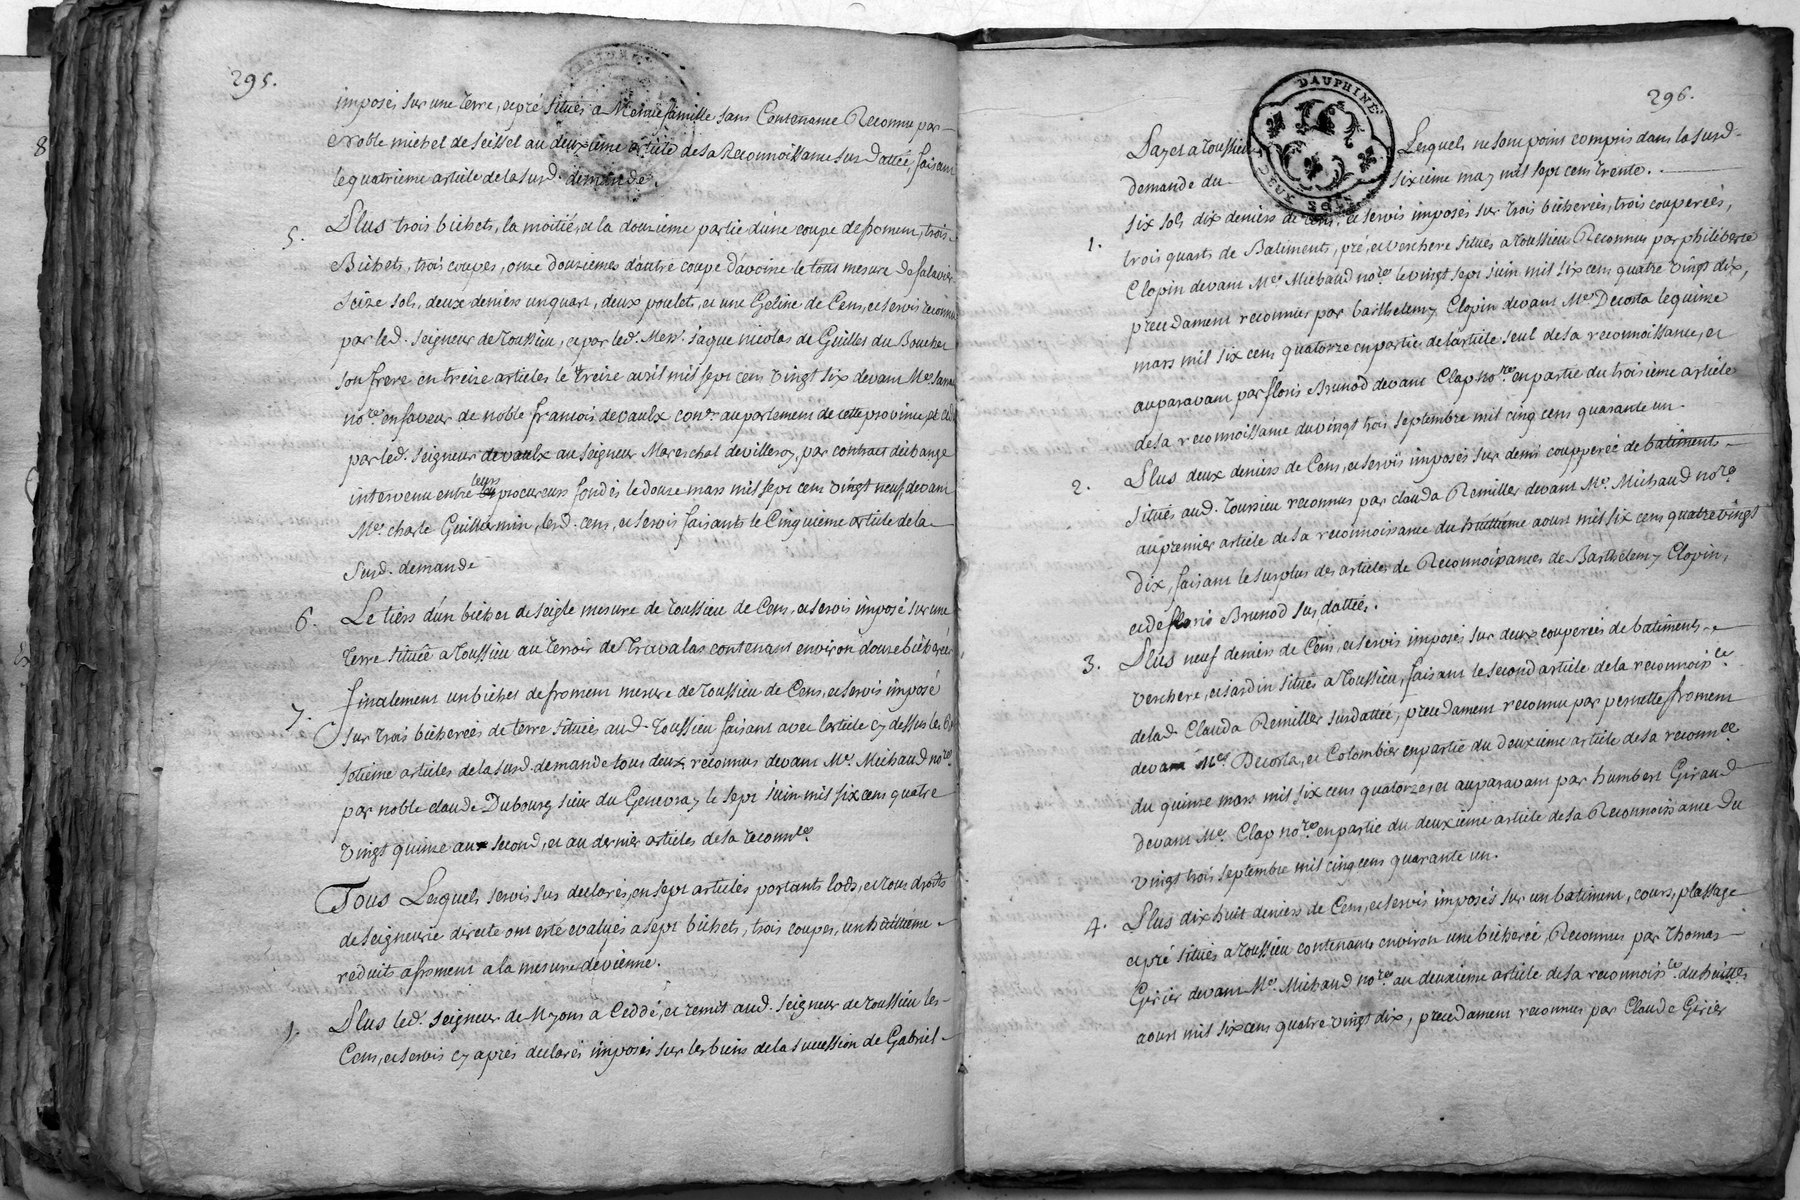 295.
imposés sur une terre, et pré situés a Mennefamille sans Contenance Reconnu par
Noble michel de seissel au deuxieme article de sa Reconnoissance sus dattée, faisant
le quatrieme article de la susd. demande.
5. Plus trois bichets, la moitié, et la douzieme partie d'une coupe de froment, trois
Bichets, trois coupes, onze douziemes d'autre coupe d'avoine le tout mesure de falavier
seize sols, deux deniers un quart, deux poulets, et une Geline de Cens, et servis reconnu
par led. seigneur de Toussieu, et par led. Mess. Jaque nicolas de Guilles du Bouchet
son frere en treize articles le treize avril mil sept cens vingt six devant Me
nore. en faveur de noble francois devaulx conr. au parlement de cette province
par led. seigneur devaulx au seigneur Mareschal devilleroy, par contract d'échange
intervenu entre leurs procureurs fondés le douze mars mil sept cens vingt neuf, devant
Me. charle Guillermin, lesd. cens, et servis faisants le Cinquieme article de la
susd. demande
6. Le tiers d'un bichet de seigle mesure de Toussieu de Cens, et servis imposé sur une
Terre située a Toussieu au terroir de Travalas contenant environ douze bicherées
7. finalement un bichet de froment mesure de Toussieu de Cens, et servis imposé
sur trois bicherées de terre situées aud. Toussieu faisant avec l'article cy dessus les 6
sotieme articles de la susd. demande tous deux reconnus devant Me. Michaud nore.
par noble claude Dubourg sieur du Genevray le sept juin mil six cens quatre
vingt quinze au second, et au dernier articles de sa reconnce
Tous Lesquels servis sus declarés, en sept articles portants lods, et tous droits
de seigneurie directe ont esté evalués a sept bichets, trois coupes, un huitieme
reduits a froment a la mesure de vienne.
1. Plus led. seigneur de Myons a Ceddé, et remit aud. seigneur de Toussieu les
Cens, et servis cy après declarés imposés sur les biens de la succession de Gabriel
DAUPHINÉ
DEUX SOLS
296.
Payet a Toussieu Lesquels ne sont point compris dans la susd.
demande du sixieme may mil sept cens trente.
1. six sols dix deniers de Cens, et servis imposés sur trois bicherées, trois couperées,
trois quarts de Batiments, pré, et verchere situés a Toussieu Reconnus par philiberte
Clopin devant Me. Michaud nore. le vingt sept juin mil six cens quatre vingt dix,
precedament reconnus par barthelemy Clopin devant Me. Decosta le quinze
mars mil six cens quatorze en partie de l'article seul de sa reconnoissance, et
auparavant par floris Brunod devant Clap nore. en partie du troisieme article
de sa reconnoissance du vingt trois septembre mil cinq cens quarante un
2. Plus deux deniers de Cens, et servis imposés sur demi coupperée de batiments
situés aud. Toussieu reconnus par clauda Remiller devant Me. Michaud nore.
au premier article de sa reconnoissance du huitieme aoust mil six cens quatre vingt
dix, faisant le surplus des articles de Reconnoissances de Barthelemy Clopin,
et de floris Brunod sus dattées.
3. Plus neuf deniers de Cens, et servis imposés sur deux couperées de batiments,
verchere, et jardin situés a Toussieu, faisant le second article de la reconnoisce.
de lad. Clauda Remiller susdattée, precedament reconnu par pernette froment
devant Mes. Decosta, et Colombier en partie du deuxieme article de sa reconnce
du quinze mars mil six cens quatorze, et auparavant par humbert Giraud
devant Me. Clap nore. en partie du deuxieme article de sa Reconnoissance du
vingt trois septembre mil cinq cens quarante un.
4. Plus dix huit deniers de Cens, et servis imposés sur un batiment, cours, plassage
et pré situés a Toussieu contenants environ une bicherée, Reconnus par Thomas
Girier devant Me. Michaud nore. au deuxieme article de sa reconnoisce. du huitie.
aoust mil six cens quatre vingt dix, precedament reconnus par Claude Girier